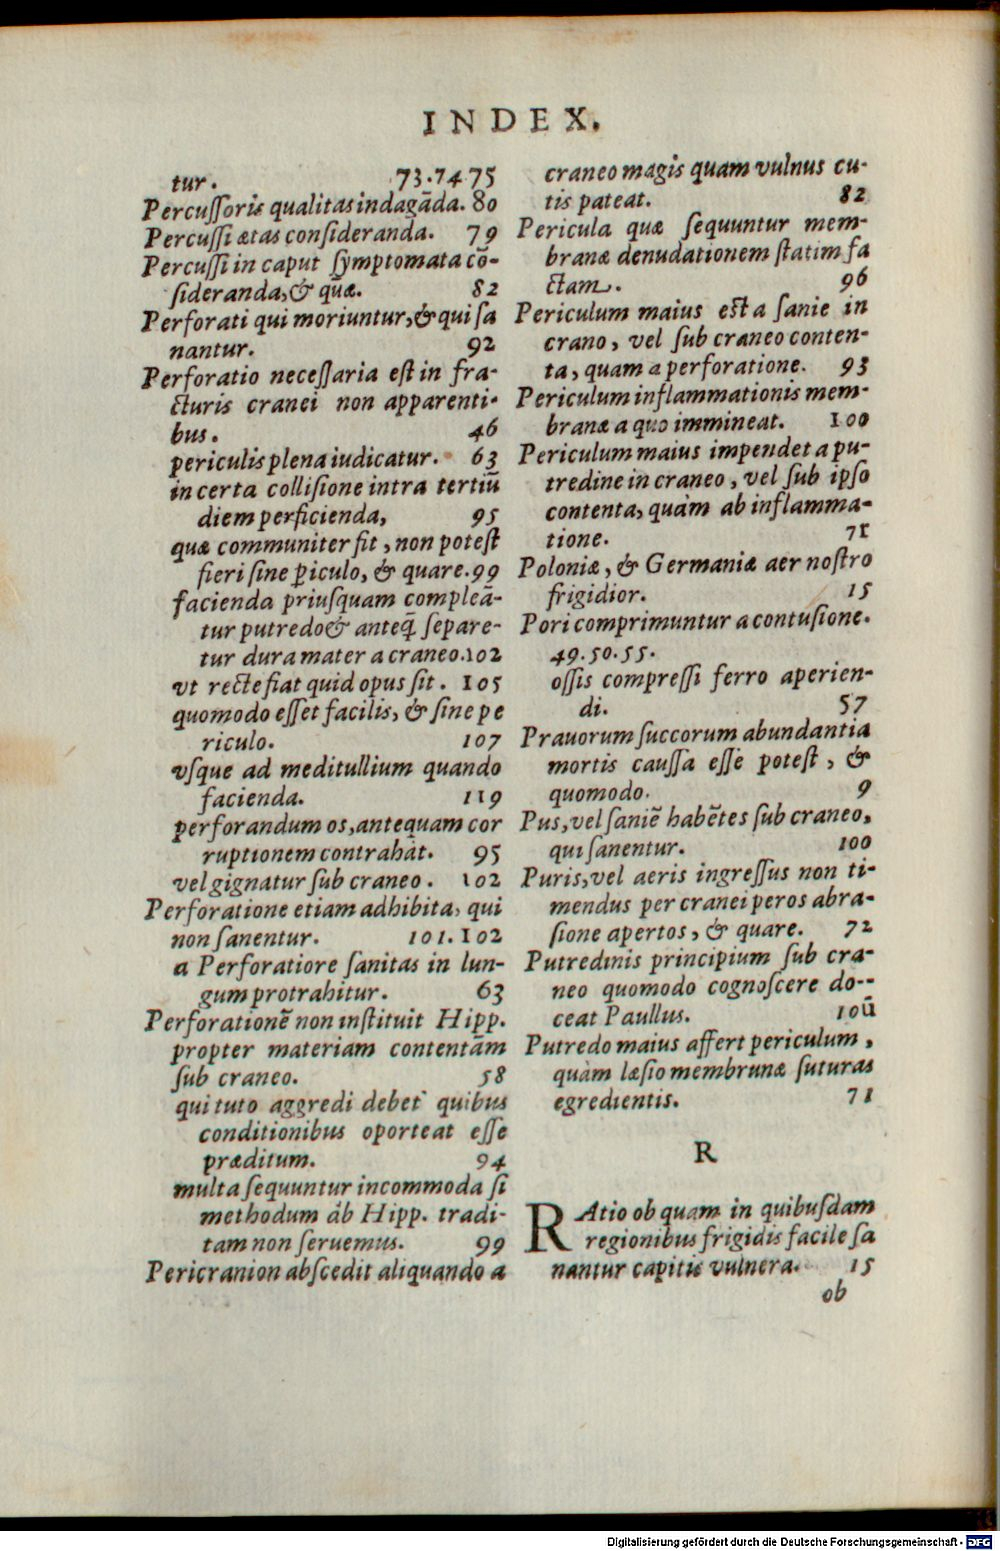 INDEX.
tur. 73.74 75
Percuſſoris qualitas indagāda. 80
Percuſſi ætas conſideranda. 79
Percuſſi in caput ſymptomata cō-
ſideranda, & quæ. 82
Perforati qui moriuntur, & qui ſa
nantur. 92
Perforatio neceſſaria eſt in fra-
cturis cranei non apparenti-
bus. 46
periculis plena iudicatur. 63
in certa colliſione intra tertiū
diem perficienda, 95
quæ communiter fit, non poteſt
fieri sine p̱iculo, & quare. 99
facienda priuſquam compleā-
tur putredo & anteq̄ ſepare-
tur dura mater a craneo. 102
vt recte fiat quid opus ſit. 105
quomodo eſſet facilis, & ſine pe
riculo. 107
vſque ad meditullium quando
facienda. 119
perforandum os, antequam cor
ruptionem contrahat. 95
vel gignatur ſub craneo. 102
Perforatione etiam adhibita, qui
non ſanentur. 101.102
a Perforatiore ſanitas in lun-
gum protrahitur. 63
Perforationē non inſtituit Hipp.
propter materiam contentam
ſub craneo. 58
qui tuto aggredi debet quibus
conditionibus oporteat eſſe
præditum. 94
multa ſequuntur incommoda ſi
methodum ab Hipp. tradi-
tam non ſeruemus. 99
Pericranion abſcedit aliquando a
craneo magis quam vulnus cu-
tis pateat. 82
Pericula quæ ſequuntur mem-
branæ denudationem ſtatim fa
ctam. 96
Periculum maius eſt a ſanie in
crano, vel ſub craneo conten-
ta, quam a perforatione. 93
Periculum inflammationis mem-
branæ a quo immineat. 100
Periculum maius impendet a pu-
tredine in craneo, vel ſub ipſo
contenta, quàm ab inflamma-
tione. 71
Poloniæ, & Germaniæ aer noſtro
frigidior. 15
Pori comprimuntur a contuſione.
49.50.55.
oſſis compreſſi ferro aperien-
di. 57
Prauorum ſuccorum abundantia
mortis cauſſa eſſe poteſt, &
quomodo. 9
Pus, vel ſaniē habētes ſub craneo,
qui ſanentur. 100
Puris, vel aeris ingreſſus non ti-
mendus per cranei peros abra-
ſione apertos, & quare. 72
Putredinis principium ſub cra-
neo quomodo cognoſcere do--
ceat Paullus. 10ū
Putredo maius affert periculum,
quàm læſio membranæ ſuturas
egredientis. 71
R
RAtio ob quam in quibuſdam
regionibus frigidis facile ſa
nantur capitis vulnera. 15
ob
Digitalisierung gefördert durch die Deutsche Forschungsgemeinschaft - DFG